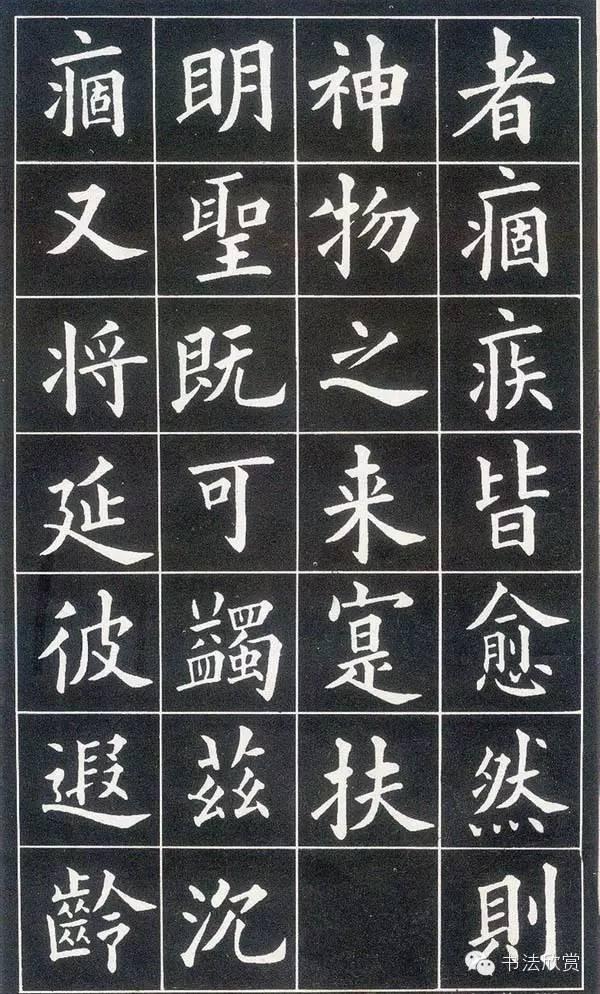 者痼疾皆愈然則
神物之来寔扶
明聖既可蠲茲沉
痼又将延彼遐齡
书法欣赏